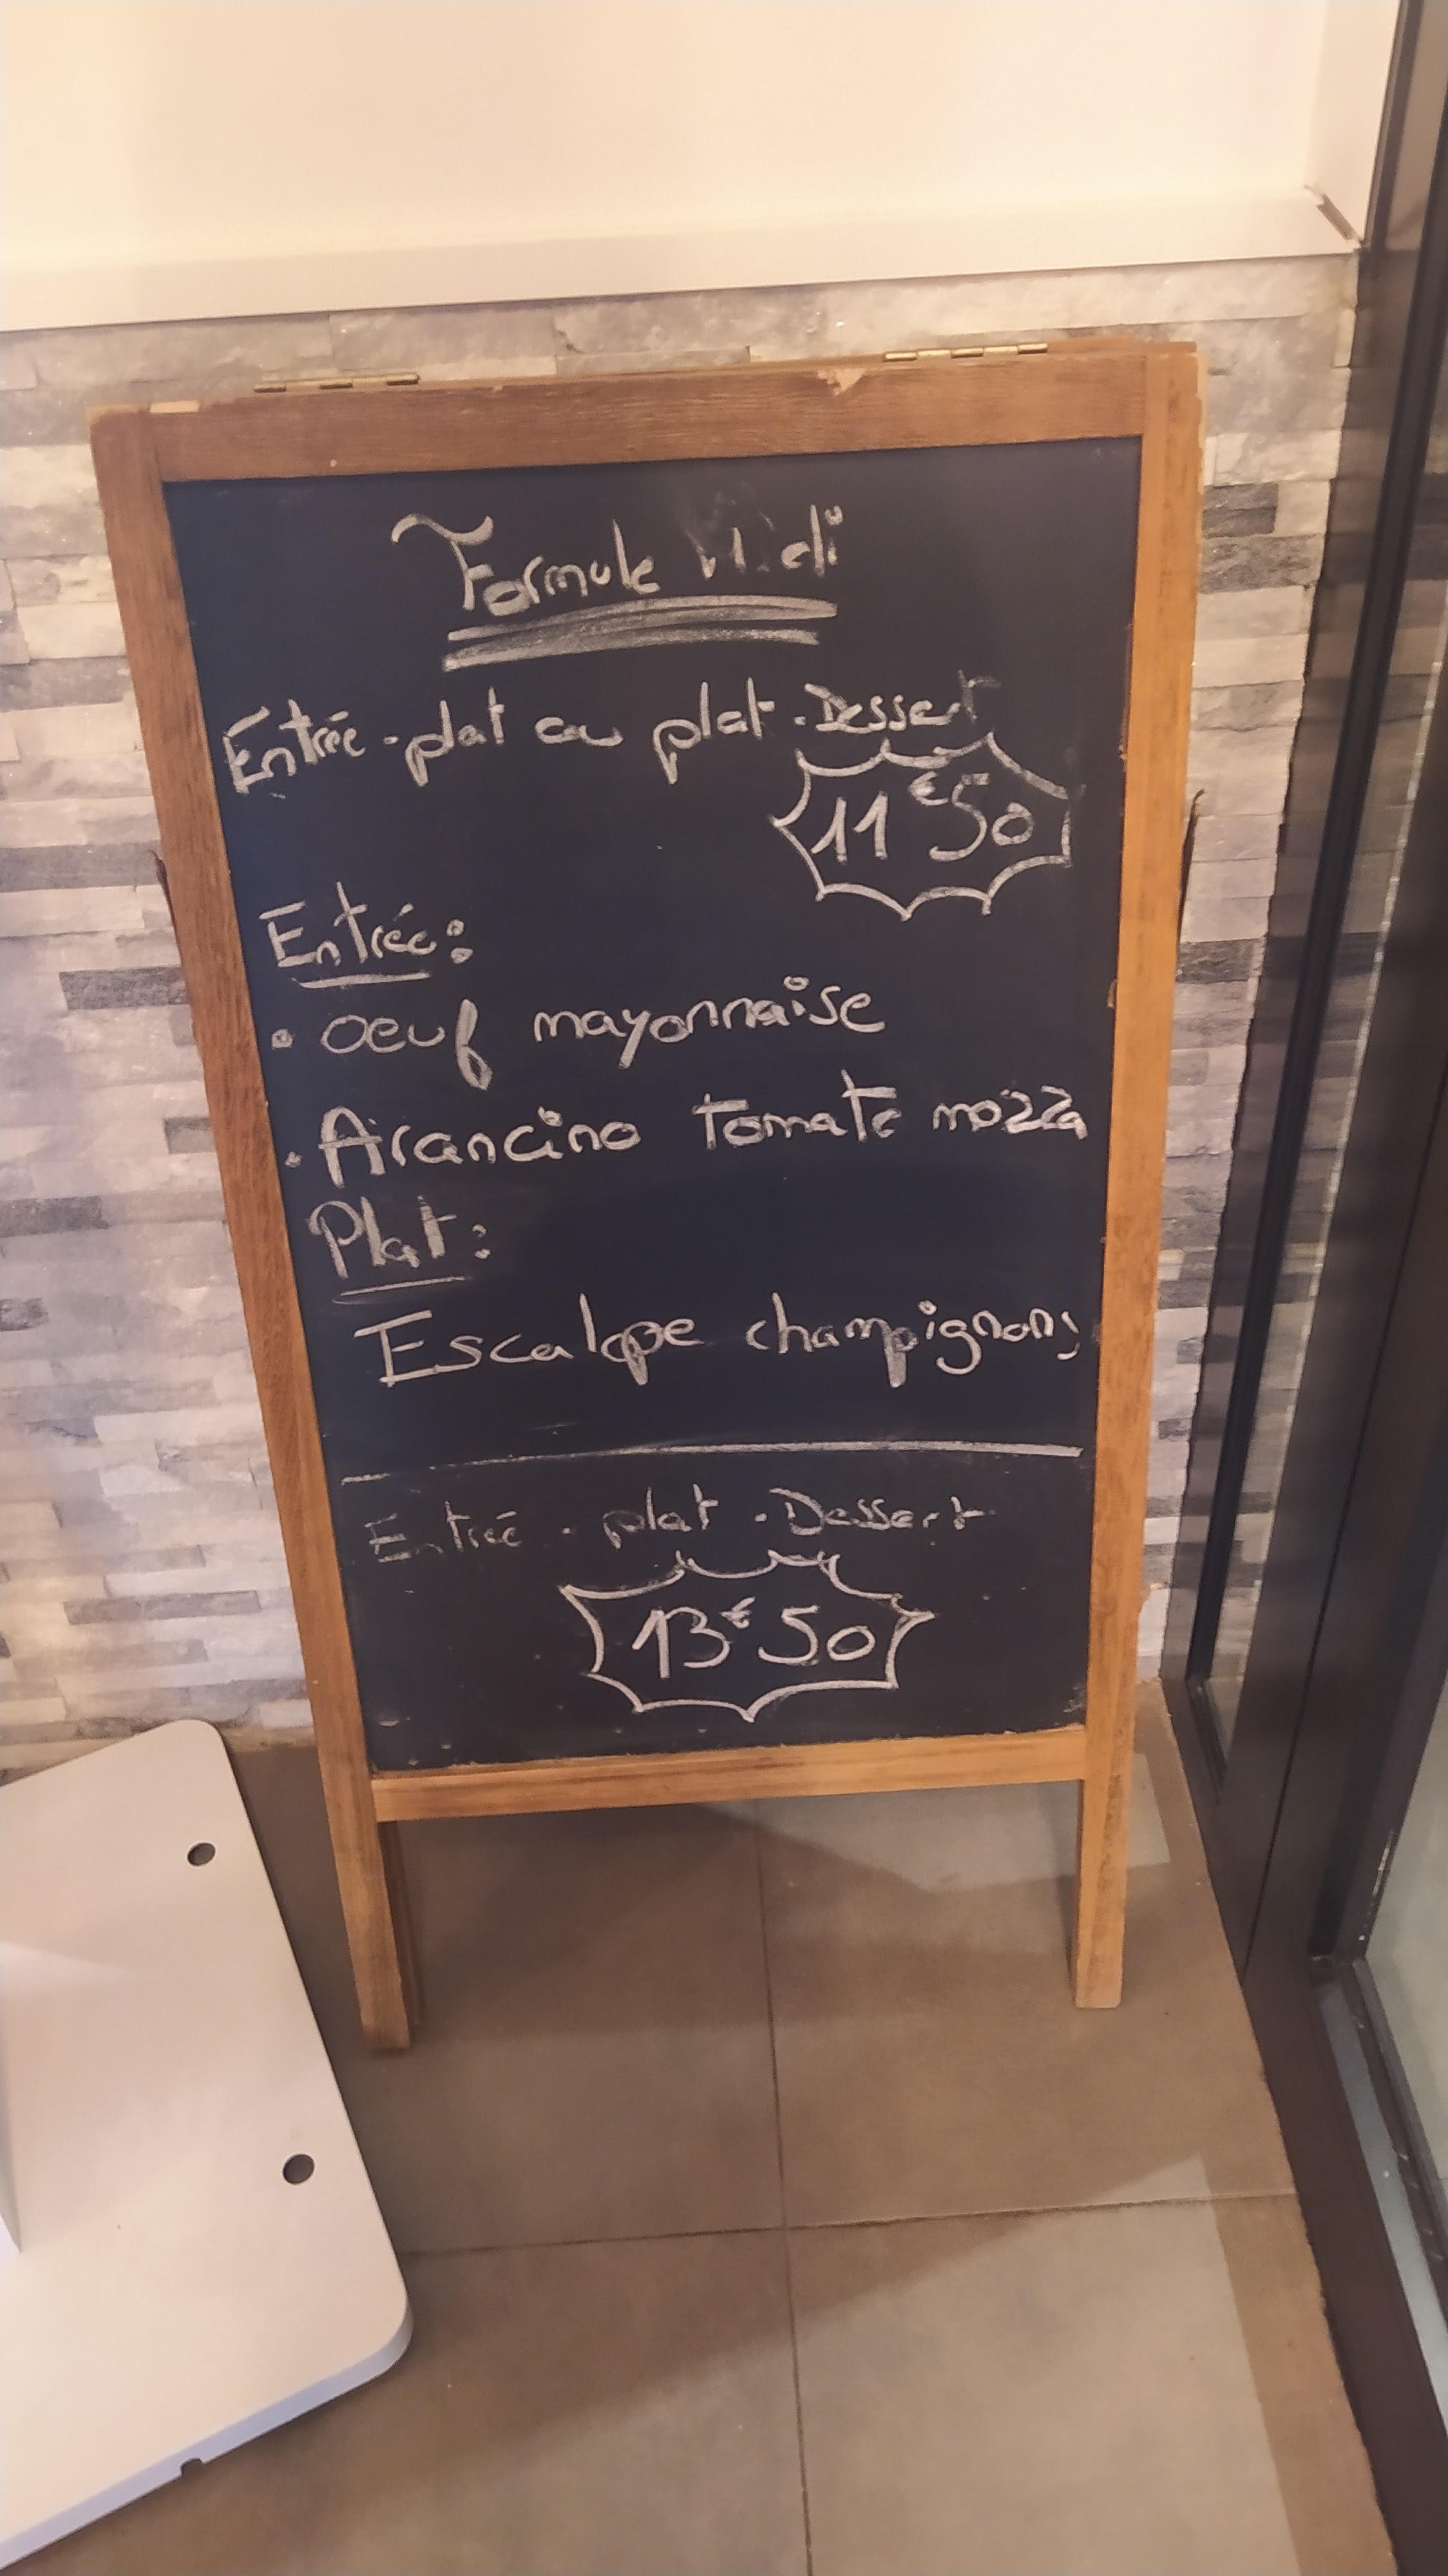 Formule Midi
Entrée - plat ou plat - Dessert
11€50
Entrée:
• oeuf mayonnaise
• Arancino tomate mozza
Plat:
Escalope champignons
Entrée - plat - Dessert
13€50